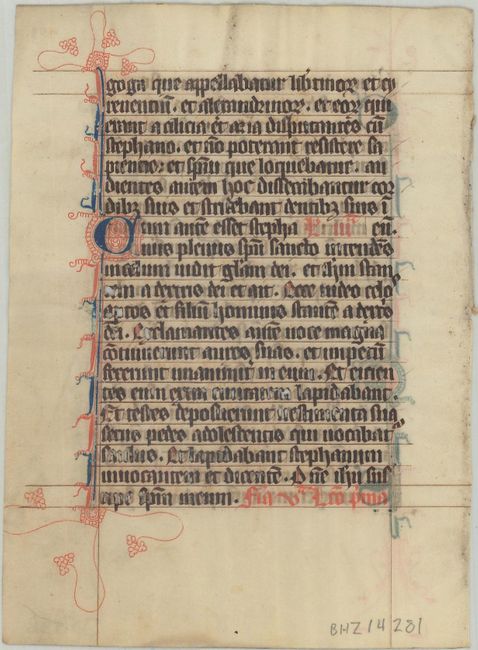 goga que appellabatur libtinor et cy
renentiu. et alexandrinor. et eor qui
erant a cilicia et asia disputantes cu
stephano. et no poterant resistere sa
piencie. et spui que loquebatur. au
dientes autem hoc dissecabantur cor
dibz suis et stridebant dentibz suis i
Cum aute esset stepha eu.
nus plenus spu sancto intendens
in celum vidit glam dei. et ihm stan
tem a dextris dei et ait. Ecce video celos
aptos et filiu hominis stante a dextris
dei. Exclamantes aute voce magna
cotinuerunt aures suas. et impetu
fecerunt unanimit in eum. Et eicien
tes eum extra civitatem lapidabant.
Et testes deposuerunt vestimenta sua
secus pedes adolescentis qui vocabat
saulus. Et lapidabant stephanum
invocantem et dicente. Dne ihu sus
cipe spm meum. Lco pma
BHZ 14 281